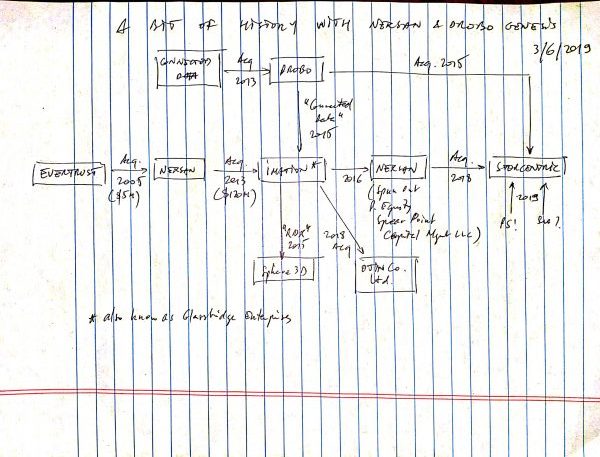 A BIT OF HISTORY WITH NEXSAN & DROBO GENESIS
3/6/2019
CONNECTED DATA
Acq
2013
DROBO
Acq. 2015
"Connected
Data"
2015
EVERTRUST
Acq.
2005
($5M)
NEXSAN
Acq.
2013
($120M)
IMATION *
2016
NEXSAN
(Spun out
P. Equity
Spear Point
Capital Mgmt LLC)
Acq.
2018
STORCENTRIC
2019
PS!
"RDX"
2015
2018
Acq
Sphere 3D
Ltd.
* also known as Glassbridge Enterprises